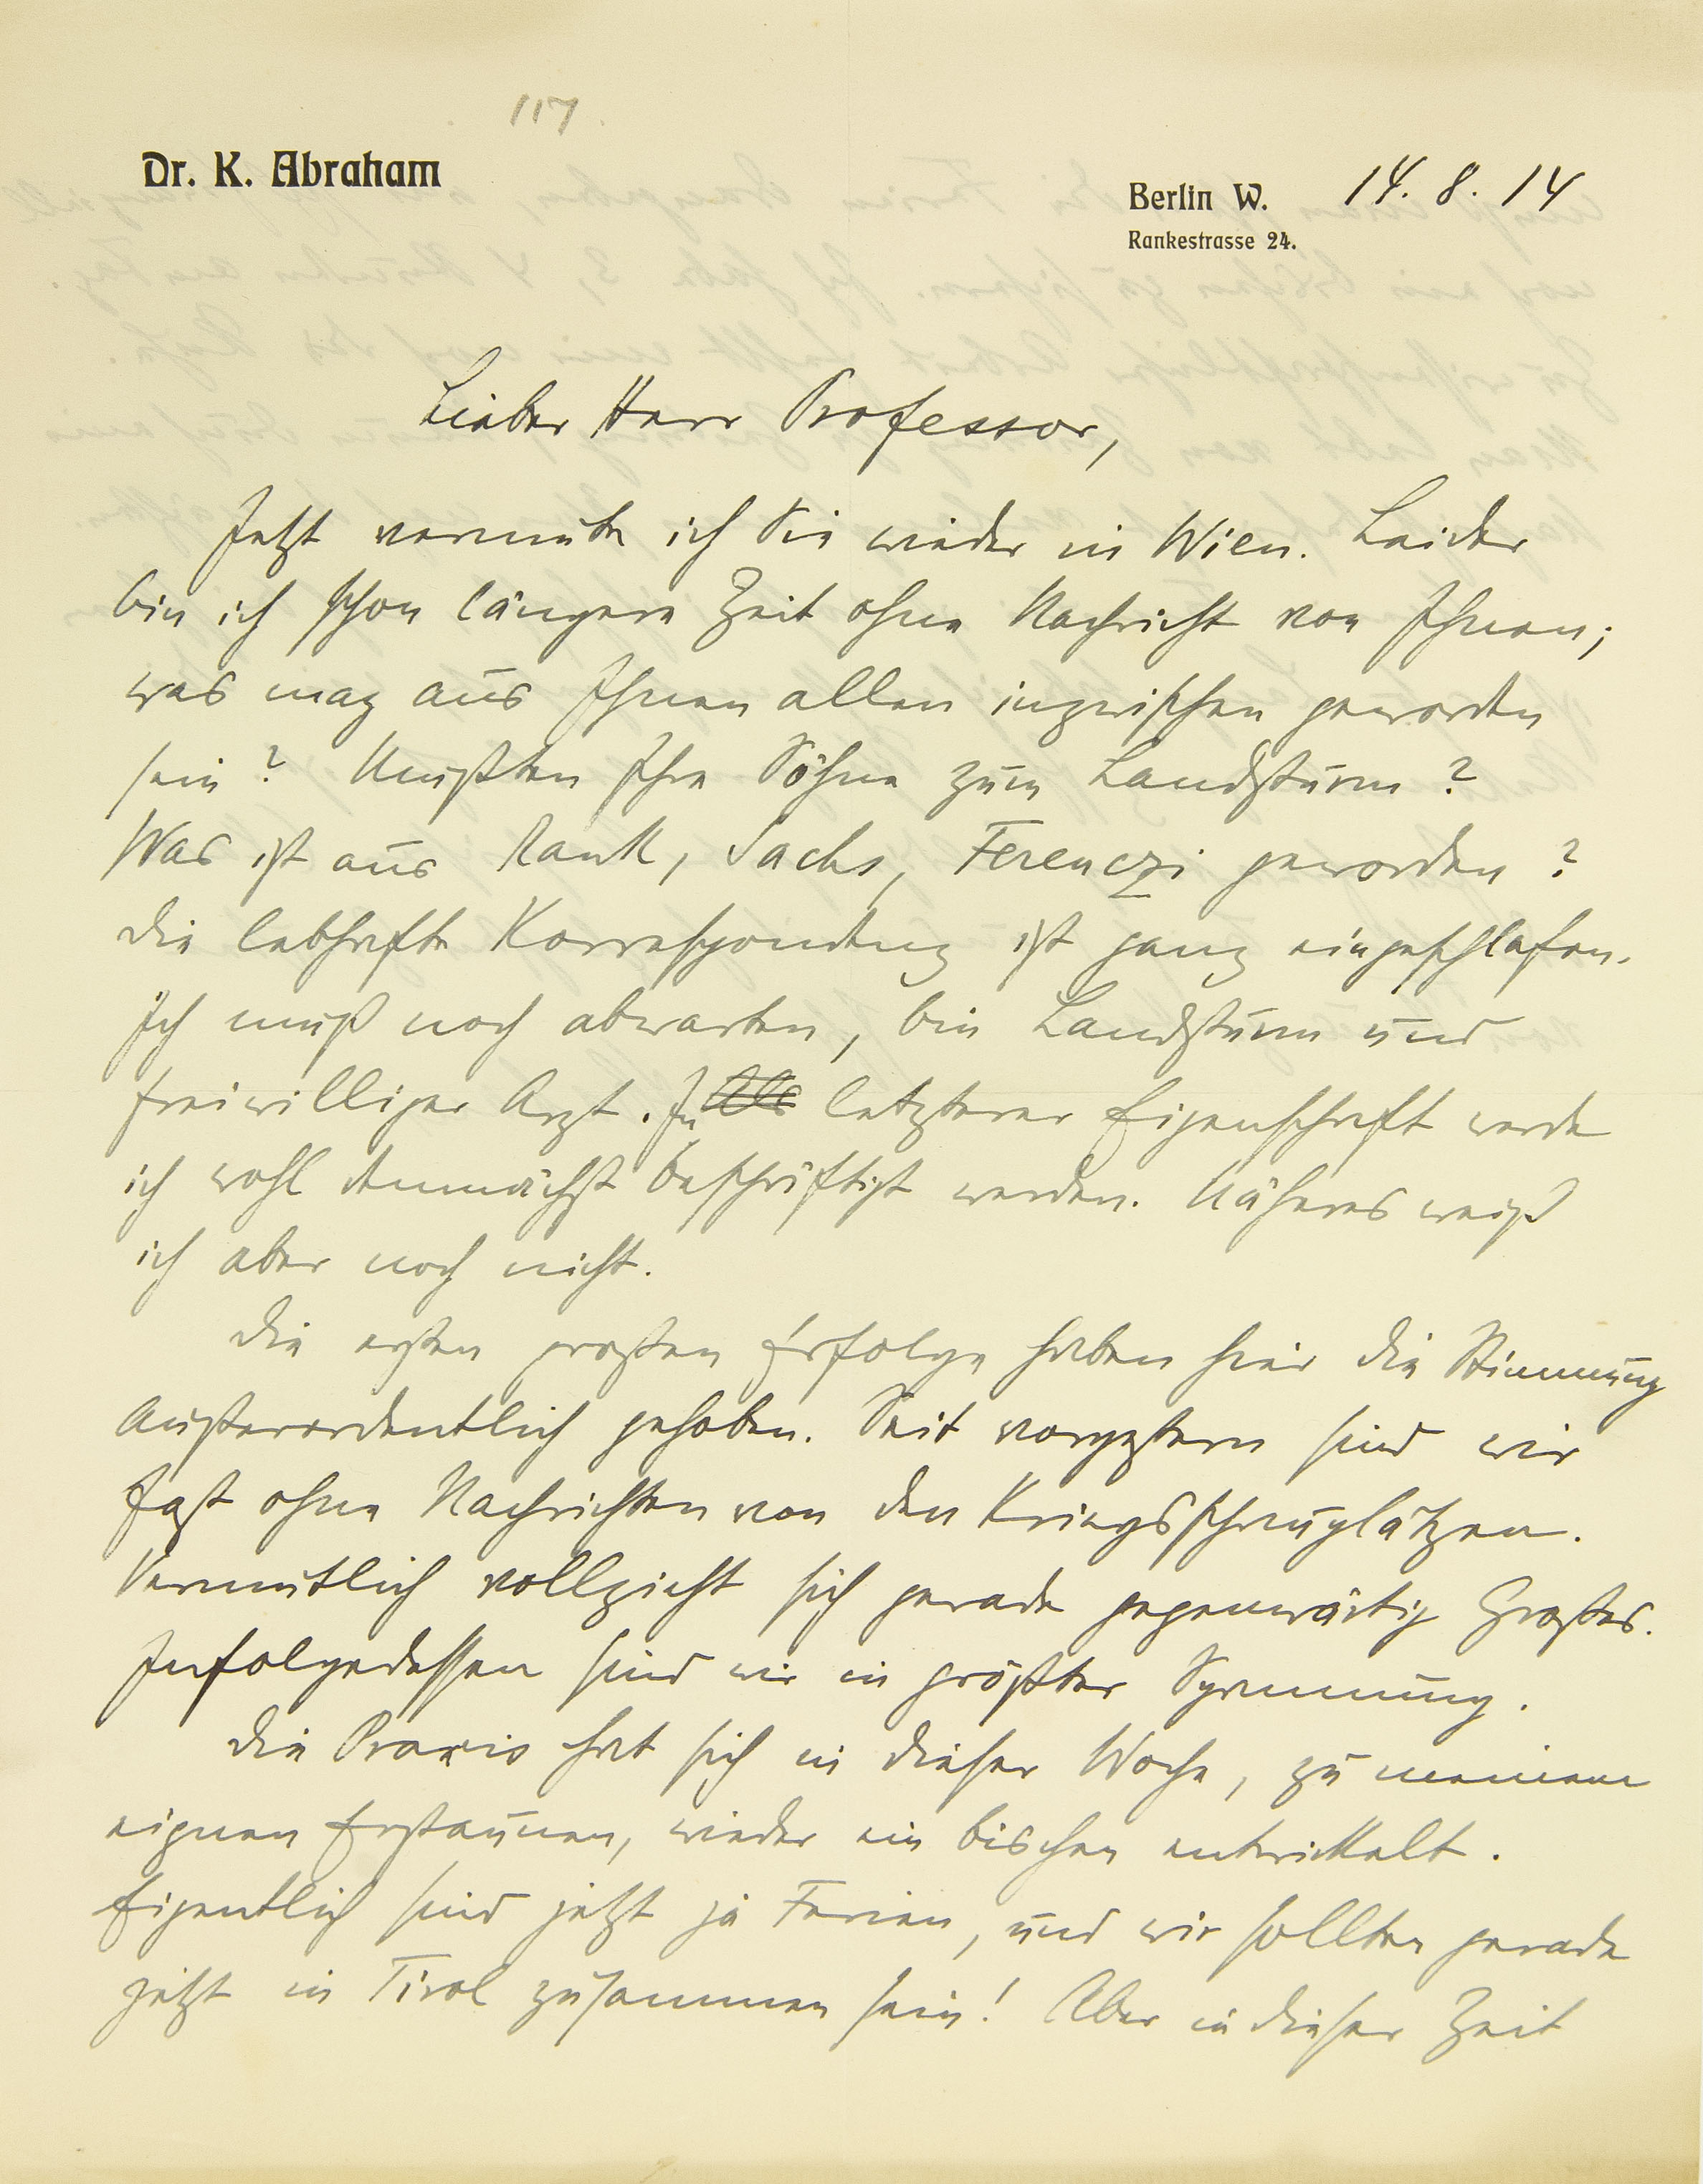 117
Dr. K. Abraham
Berlin W. 14. 8. 14
Rankestrasse 24.
Lieber Herr Professor,
Jetzt vermute ich Sie wieder in Wien. Leider
bin ich schon längere Zeit ohne Nachricht von Ihnen;
was mag aus Ihnen allen inzwischen geworden
sein? Mußten Ihre Söhne zum Landsturm?
Was ist aus Rank, Sachs, Ferenczi geworden?
Die lebhafte Korrespondenz ist ganz eingeschlafen.
Ich muß noch abwarten, bin Landsturm und
freiwilliger Arzt. In Als letzterer Eigenschaft werde
ich wohl demnächst beschäftigt werden. Näheres weiß
ich aber noch nicht.
Die ersten großen Erfolge haben hier die Stimmung
außerordentlich gehoben. Seit vorgestern sind wir
fast ohne Nachrichten von den Kriegsschauplätzen.
Vermutlich vollzieht sich gerade gegenwärtig Großes.
Infolgedessen sind wir in größter Spannung.
Die Praxis hat sich in dieser Woche, zu meinem
eignen Erstaunen, wieder ein bischen entwickelt.
Eigentlich sind jetzt ja Ferien, und wir sollten gerade
jetzt in Tirol zusammen sein! Aber in dieser Zeit